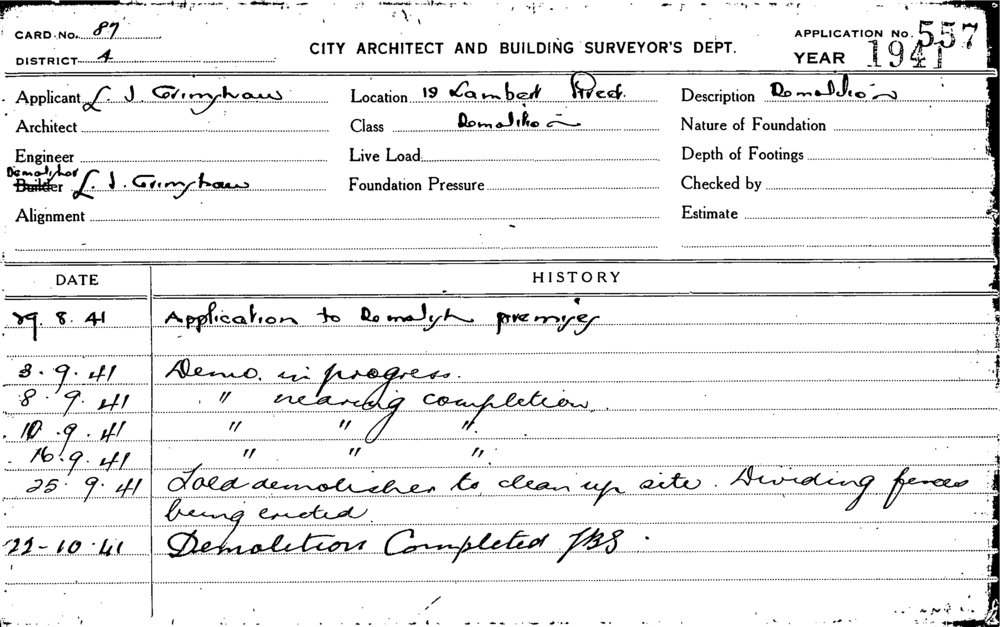 CARD No. 87
DISTRICT 4
CITY ARCHITECT AND BUILDING SURVEYOR'S DEPT.
APPLICATION No. 557
YEAR 1941
Applicant L. J. Grimshaw Location 19 Lambert Street. Description Demolition
Architect Class Demolition Nature of Foundation
Engineer Live Load Depth of Footings
Demolisher
Builder L. J. Grimshaw Foundation Pressure Checked by
Alignment Estimate
DATE HISTORY
29. 8. 41 Application to Demolish premises
3. 9. 41 Demo. in progress.
8. 9. 41 " nearing completion.
10. 9. 41 " " "
16. 9. 41 " " "
25. 9. 41 Told demolisher to clean up site. Dividing fences
being erected.
22-10-41 Demolition Completed JBS.